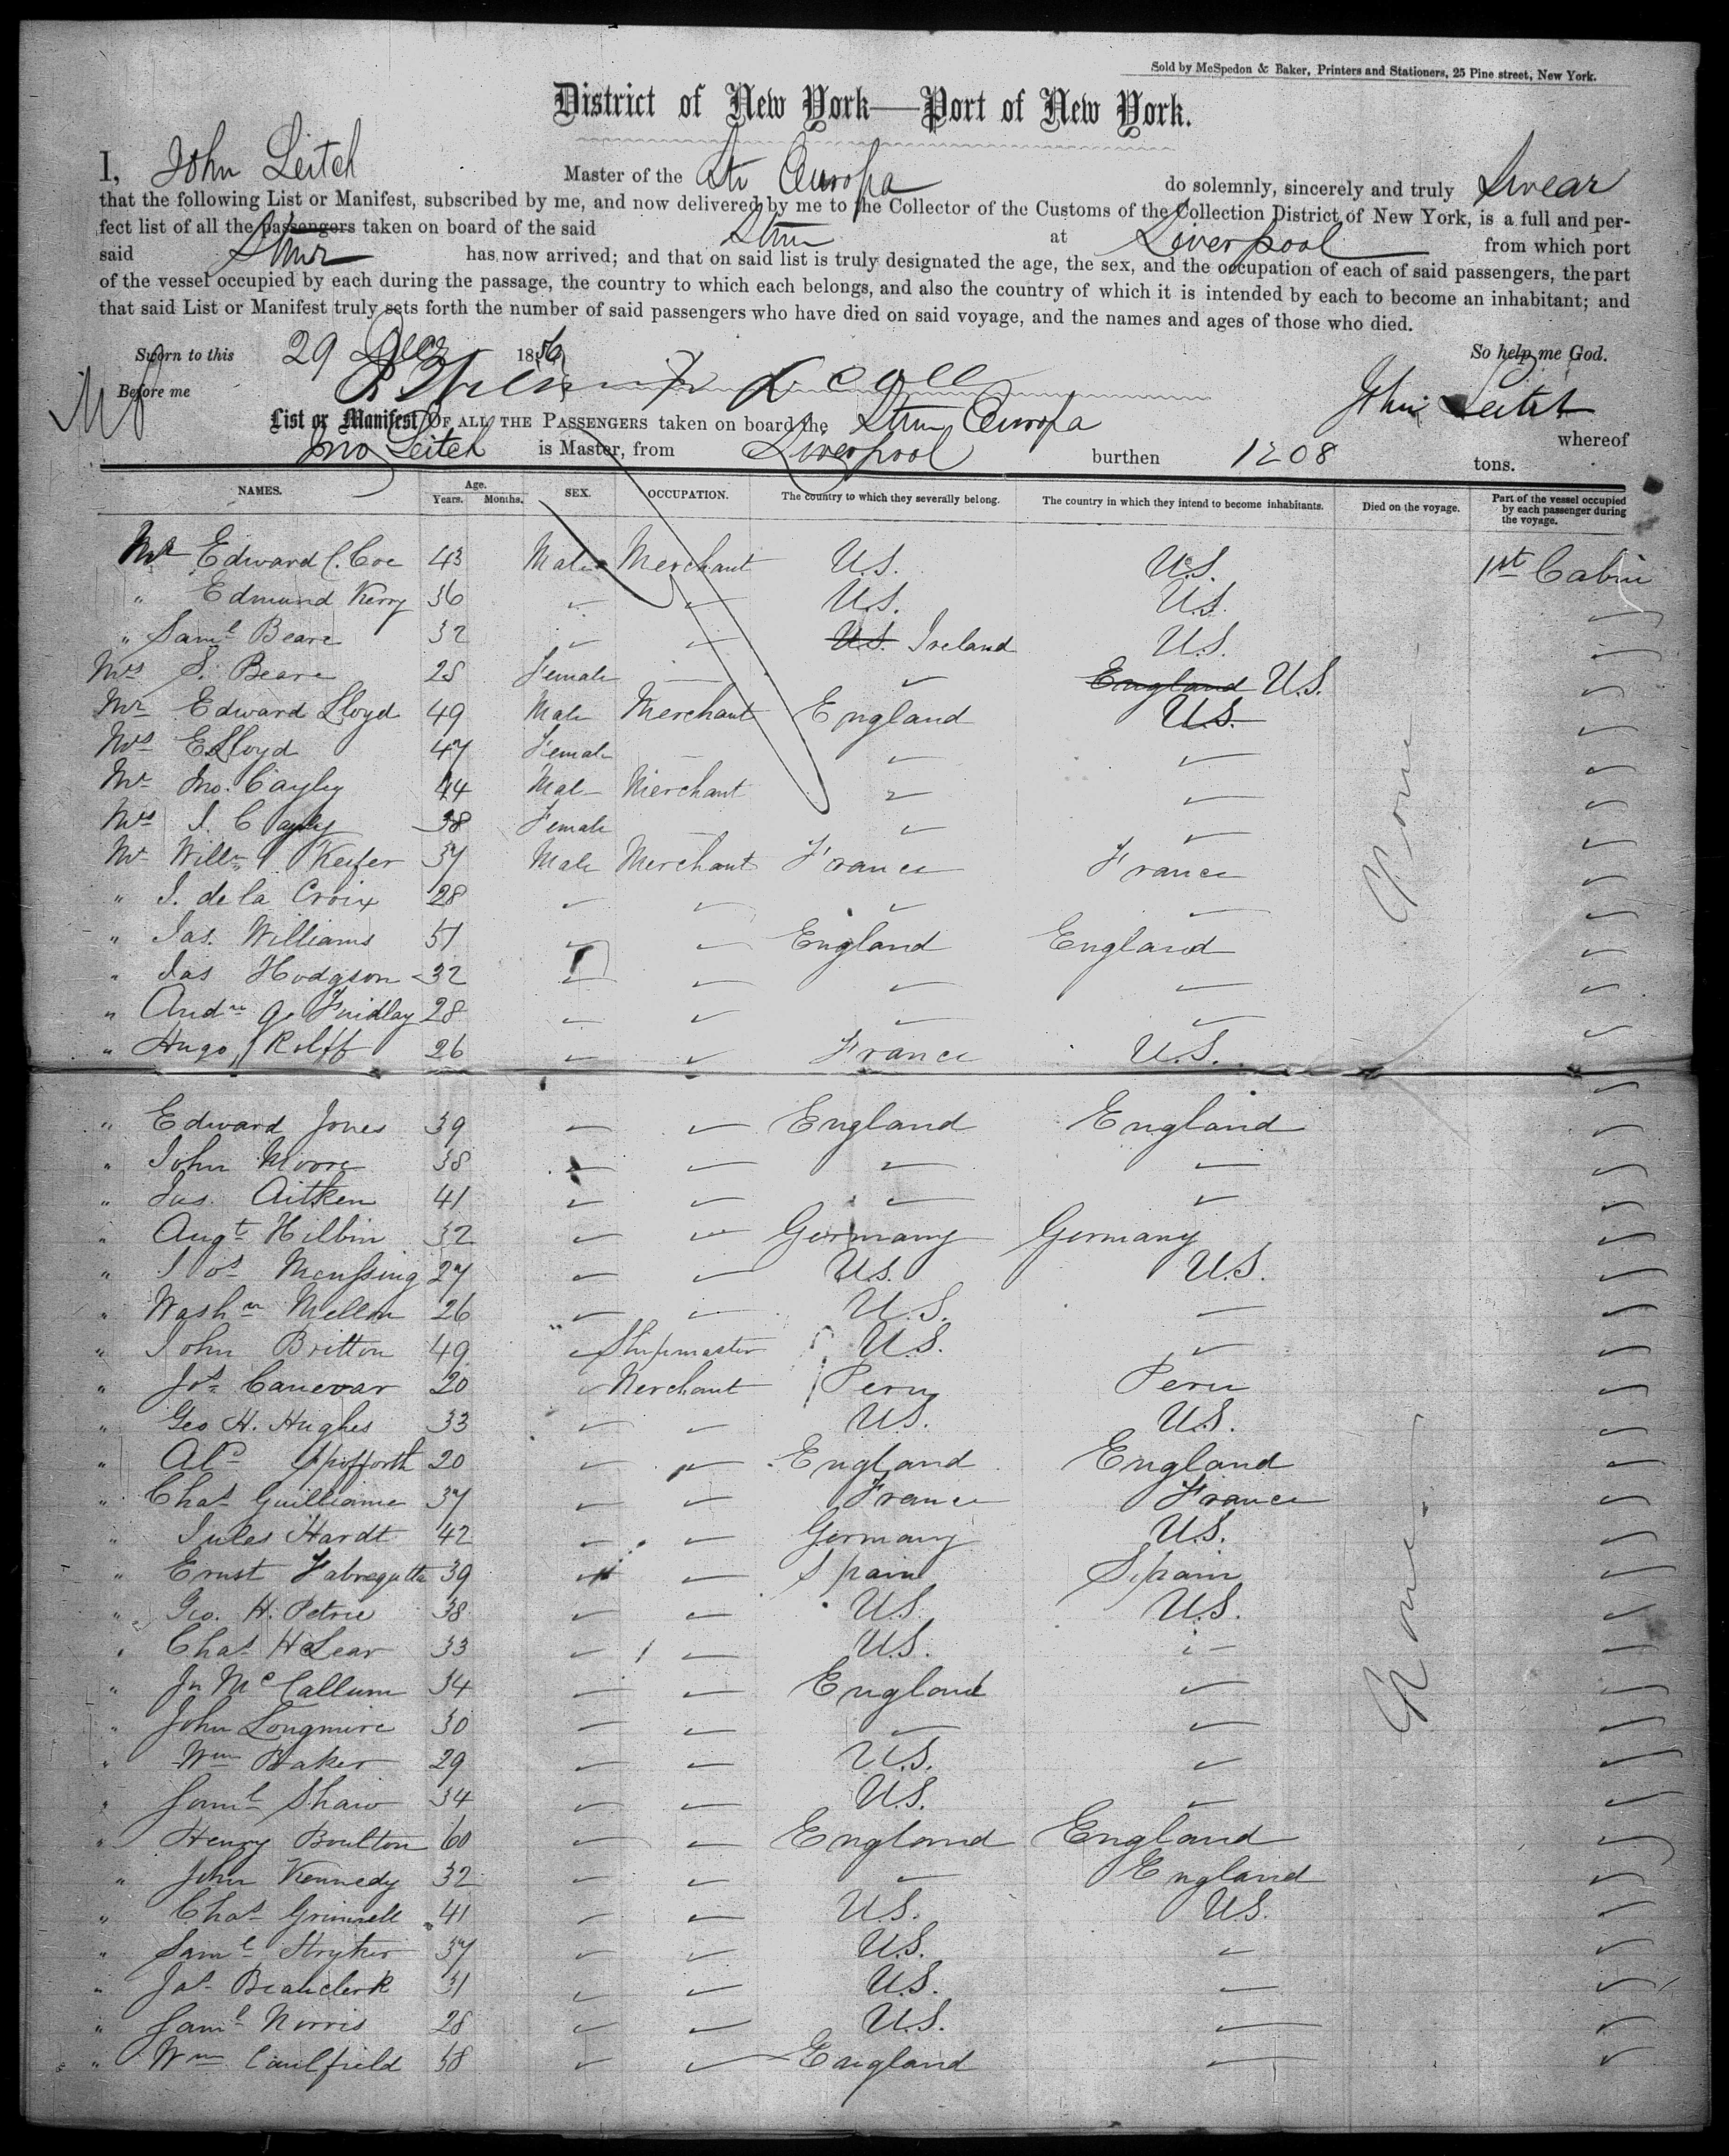 Sold by McSpedon & Baker, Printers and Stationers, 25 Pine street, New York.
District of New York—Port of New York.
I, John Leitch Master of the Str Europa do solemnly, sincerely and truly Swear
that the following List or Manifest, subscribed by me, and now delivered by me to the Collector of the Customs of the Collection District of New York, is a full and per-
fect list of all the passengers taken on board of the said Stmr at Liverpool from which port
said Stmr has now arrived; and that on said list is truly designated the age, the sex, and the occupation of each of said passengers, the part
of the vessel occupied by each during the passage, the country to which each belongs, and also the country of which it is intended by each to become an inhabitant; and
that said List or Manifest truly sets forth the number of said passengers who have died on said voyage, and the names and ages of those who died.
Sworn to this 29 Decr 1856 So help me God.
Before me John Leitch
List or Manifest OF ALL THE PASSENGERS taken on board the Stmr Europa whereof
Jno Leitch is Master, from Liverpool burthen 1208 tons.
NAMES. Age. Years. Months. SEX. OCCUPATION. The country to which they severally belong. The country in which they intend to become inhabitants. Died on the voyage. Part of the vessel occupied by each passenger during the voyage.
Mr Edward C. Coe 43 Male Merchant U.S. U.S. 1st Cabin
" Edmund Kerry 36 U.S. U.S.
" Saml Beare 32 U.S. Ireland U.S.
Mrs S. Beare 28 Female England U.S.
Mr Edward Lloyd 49 Male Merchant England U.S.
Mrs E Lloyd 47 Female
Mr Jno. Cayley 44 Male Merchant
Mrs J. Cayley 38 Female
Mr Willm Keifer 37 Male Merchant France France
" J. de la Croix 28
" Jas. Williams 51 England England
" Jas Hodgson 32
" Andw G. Findlay 28
" Hugo Rolff 26 France U.S.
None
" Edward Jones 39 England England
" John Moore 38
" Jas. Aitken 41
" Augt Hilbin 32 Germany Germany
" Jos Meussing 27 U.S. U.S.
" Washn Mellon 26 U.S.
" John Britton 49 Shipmaster U.S.
" Jos Canevar 20 Merchant Peru Peru
" Geo H. Hughes 33 U.S. U.S.
" Alfd Spofforth 20 England England
" Chas Guilliame 37 France France
" Jules Hardt 42 Germany U.S.
" Ernst Fabregatta 39 Spain Spain
" Geo. H. Petrie 38 U.S. U.S.
" Chas H Lear 33 U.S.
" Jn McCallum 34 England
" John Longmire 30
" Wm Baker 29 U.S.
" Saml Shaw 34 U.S.
" Henry Boulton 60 England England
" John Kennedy 32 England
" Chas Grinnell 41 U.S. U.S.
" Saml Stryker 37 U.S.
" Jas Beauclerk 31 U.S.
" Saml Norris 28 U.S.
" Wm Caulfield 38 England
None